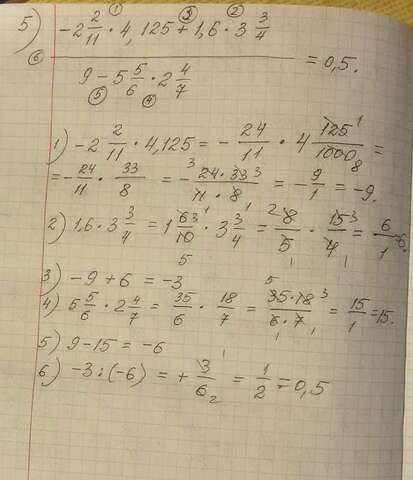 5) ① ③ ②
-2 2/11 · 4,125 + 1,6 · 3 3/4
⑥ ——— = 0,5.
9 - 5 5/6 · 2 4/7
⑤ ④
1) -2 2/11 · 4,125 = - 24/11 · 4 125/1000 =
= - 24/11 · 33/8 = - 24·33/11·8 = - 9/1 = -9.
2) 1,6 · 3 3/4 = 1 6/10 · 3 3/4 = 8/5 · 15/4 = 6/1 = 6.
3) -9 + 6 = -3
4) 5 5/6 · 2 4/7 = 35/6 · 18/7 = 35·18/6·7 = 15/1 = 15.
5) 9 - 15 = -6
6) -3 : (-6) = + 3/6 = 1/2 = 0,5